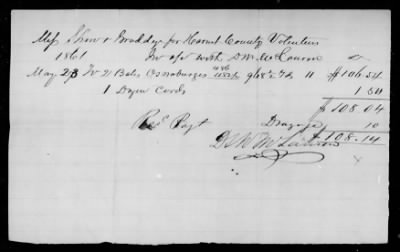 Mess Shaw & Braddy for Harnet County Volunteers
1861 In a/c with D. McLaurin
May 23 To 2 Bales Osnaburgs 968½ yds 11 $106.54
1 Dozen Cords 1 50
$ 108.04
Recd Payt Drayage 10
$108.14
D McLaurin